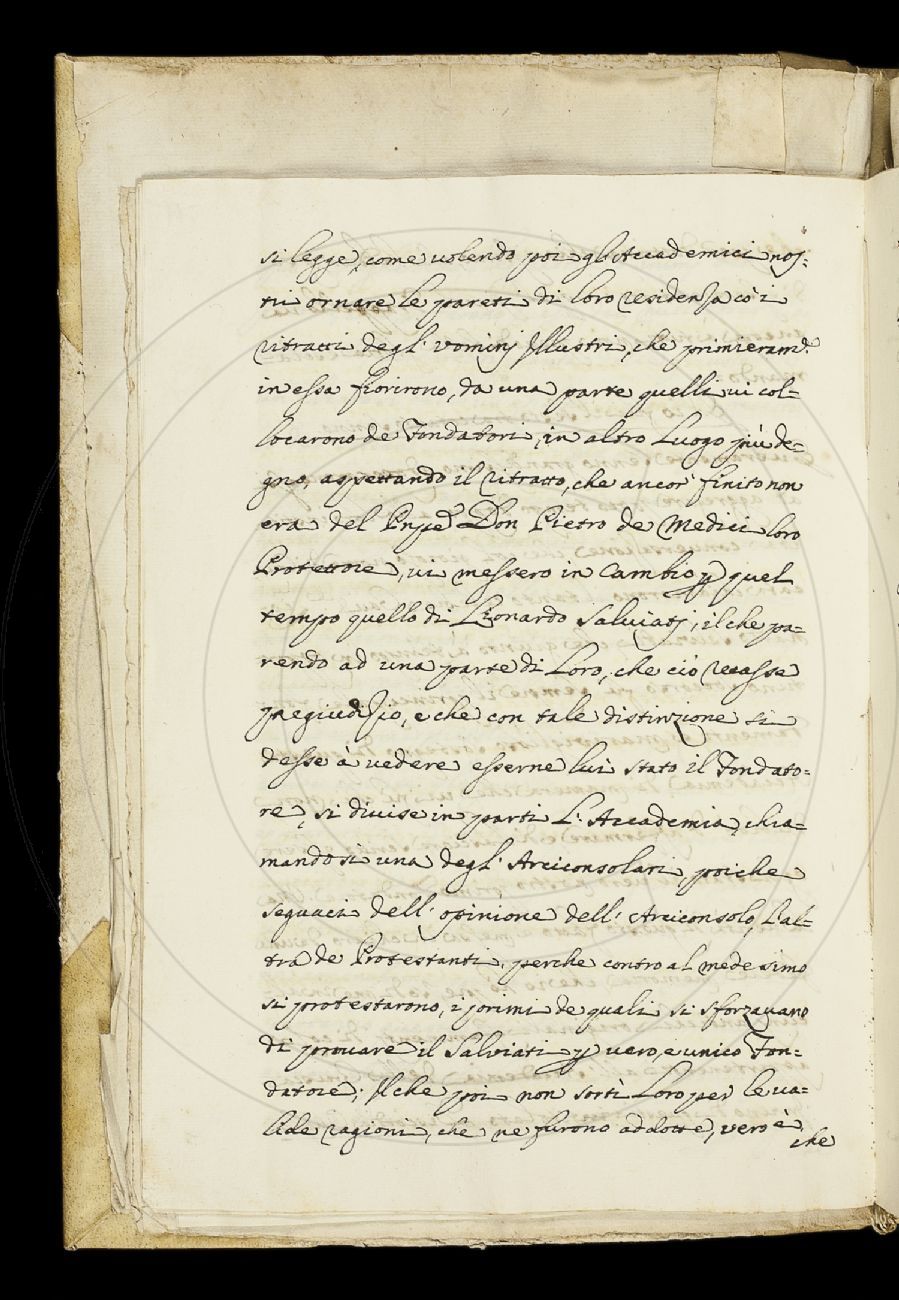 si legge, come volendo poi gl'Accademici nos-
tri ornare le pareti di loro residenza cò i
ritratti degl' vominj Illustri, che primieramᵉ.
in essa fiorirono, da una parte quelli vi col=
locarono de Fondatori, in altro Luogo più de=
gno, aspettando il ritratto, che ancor finito non
era del Pnpe Don Pietro de Medici loro
Protettore, vi messero in Cambio p quel
tempo quello di Lionardo Salviatj, il che pa=
rendo ad una parte di Loro, che ciò recasse
pregiudizio, e che con tale distinzione si
desse à vedere esserne lui stato il Fondato=
re, si divise in parti L'Accademia, chia=
mandosi una degl' Arciconsolari, poiche
seguaci dell' opinione dell' Arciconsolo, l'al=
tra de Protestanti, perche contro al medesimo
si protestarono, i primi de quali si sforzavano
di provare il Salviati p vero, e unico Fon=
datore; Il che poi non sortì Loro per le va=
lide ragioni, che ne furono addotte, vero è,
che